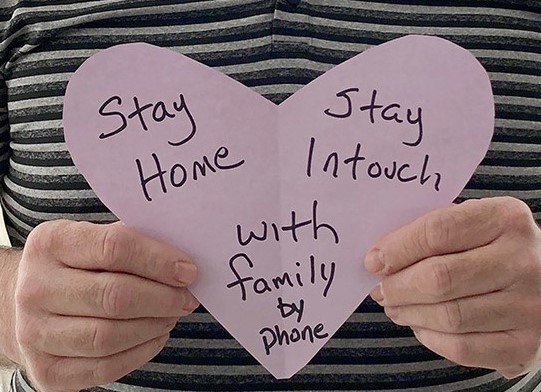 Stay
Home
Stay
Intouch
with
family
by
phone